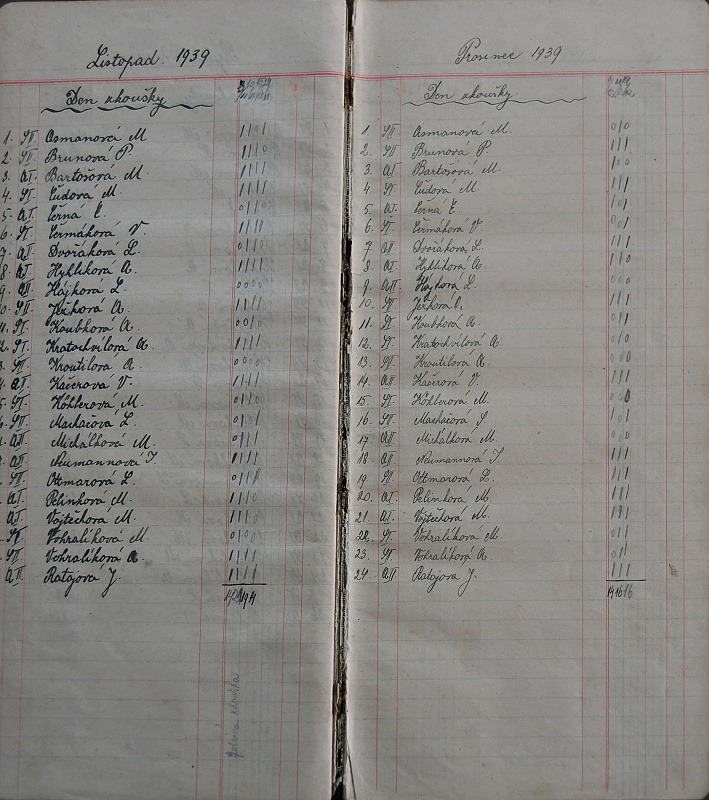 Listopad 1939
Den zkoušky
1. SII Osmanová M 1101
2. SII Brunová P. 1110
3. AI. Bartošová M. 1111
4. SI. Čudová M. 1111
5. AI. Černá E. 0110
6. SI. Čermáková V. 1111
7. AI. Dvořáková L. 0110
8. AI. Hyklíková A. 1111
9. AII Hájková L. 0000
0. SII Ježková A. 1111
SI. Koubková A. 0010
SI. Kratochvílová A 1111
SII Kroutilová A. 0000
AII Kačerová V. 1111
SI. Köhlerová M. 0110
SII Machačová L. 0111
AII Michálková M. 0111
AII Neumannová J. 1111
SII Ottmarová L.
AI. Pelinková M. 1110
AI. Vojtěchová M. 1111
SI. Vohralíková M 0100
SII Vohralíková A. 1111
AII Ratajová J. 1111
Prosinec 1939
Den zkoušky
1. SII Osmanová M. 010
2. SII Brunová P 111
3. AI. Bartošová M. 100
4 SI. Čudová M. 111
5. AI. Černá E. 101
6. SI. Čermáková V. 001
7 AII Dvořáková L. 111
8. AI. Hyklíková A. 110
9 AII. Hájková L. 000
10. SII Ježková A. 111
11. SI Koubková A. 011
12. SI. Kratochvílová A 010
13. SII. Kroutilová A. 000
14. AII Kačerová V. 111
15. SI. Köhlerová M.
16. SII. Machačová L. 101
17 AII Michálková M. 000
18. AII Neumannová J. 111
19. SII Ottmarová L. 111
20. AI. Pelinková M. 111
21. AI. Vojtěchová M 111
22. SI. Vohralíková M. 011
23. SII Vohralíková A 011
24. AII Ratajová J. 111
14 16 16